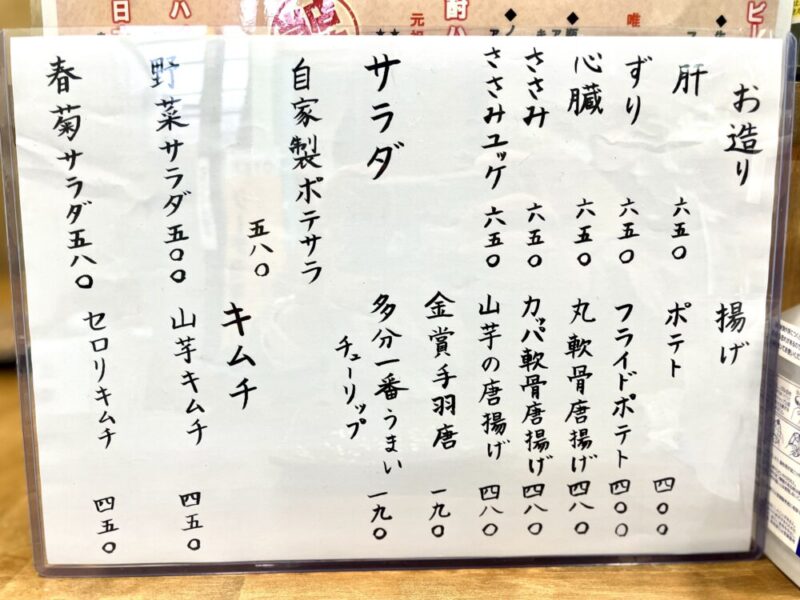 お造り
肝 六五〇
ずり 六五〇
心臓 六五〇
ささみ 六五〇
ささみユッケ 六五〇
サラダ
自家製ポテサラ
五八〇
野菜サラダ 五〇〇
春菊サラダ 五八〇
揚げ
ポテト
フライドポテト 四〇〇
四〇〇
丸軟骨唐揚げ 四八〇
カッパ軟骨唐揚げ 四八〇
山芋の唐揚げ 四八〇
金賞手羽唐 一九〇
多分一番うまい
チューリップ 一九〇
キムチ
山芋キムチ 四五〇
セロリキムチ 四五〇